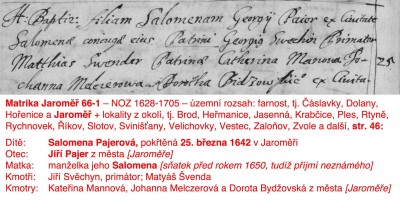 H: Baptiz: filiam Salomenam Georgÿ Paier ex Ciuitate
Salomena coniuge eius Patrini Georgig Swechin Primator
Matthias Swender Patrina Catherina Manowa Jo-
hanna Melczerowa et Dorothea Bidzowskic ex Ciuita-
25
Matrika Jaroměř 66-1 – NOZ 1628-1705 – územní rozsah: farnost, tj. Čáslavky, Dolany,
Hořenice a Jaroměř + lokality z okolí, tj. Brod, Heřmanice, Jasenná, Krabčice, Ples, Rtyně,
Rychnovek, Říkov, Slotov, Svinišťany, Velichovky, Vestec, Zaloňov, Zvole a další, str. 46:
Dítě: Salomena Pajerová, pokřtěná 25. března 1642 v Jaroměři
Otec: Jiří Pajer z města [Jaroměře]
Matka: manželka jeho Salomena [sňatek před rokem 1650, tudíž příjmí neznámého]
Kmotři: Jiří Svěchyn, primátor; Matyáš Švenda
Kmotry: Kateřina Mannová, Johanna Melczerová a Dorota Bydžovská z města [Jaroměře]